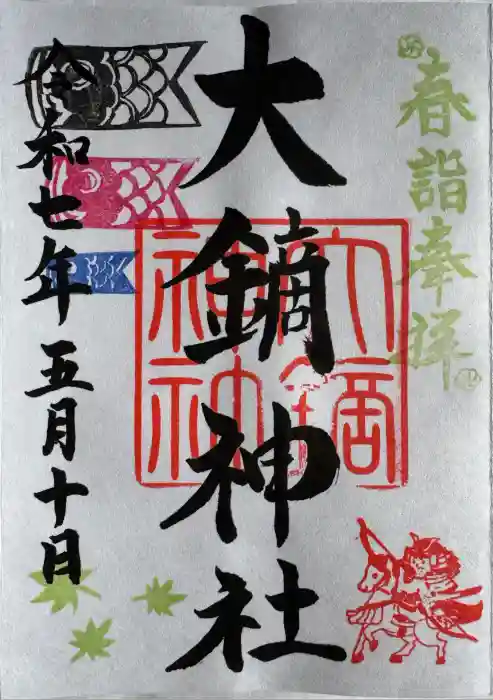 春詣奉拝
大鏑神社
大鏑神社
令和七年五月十日